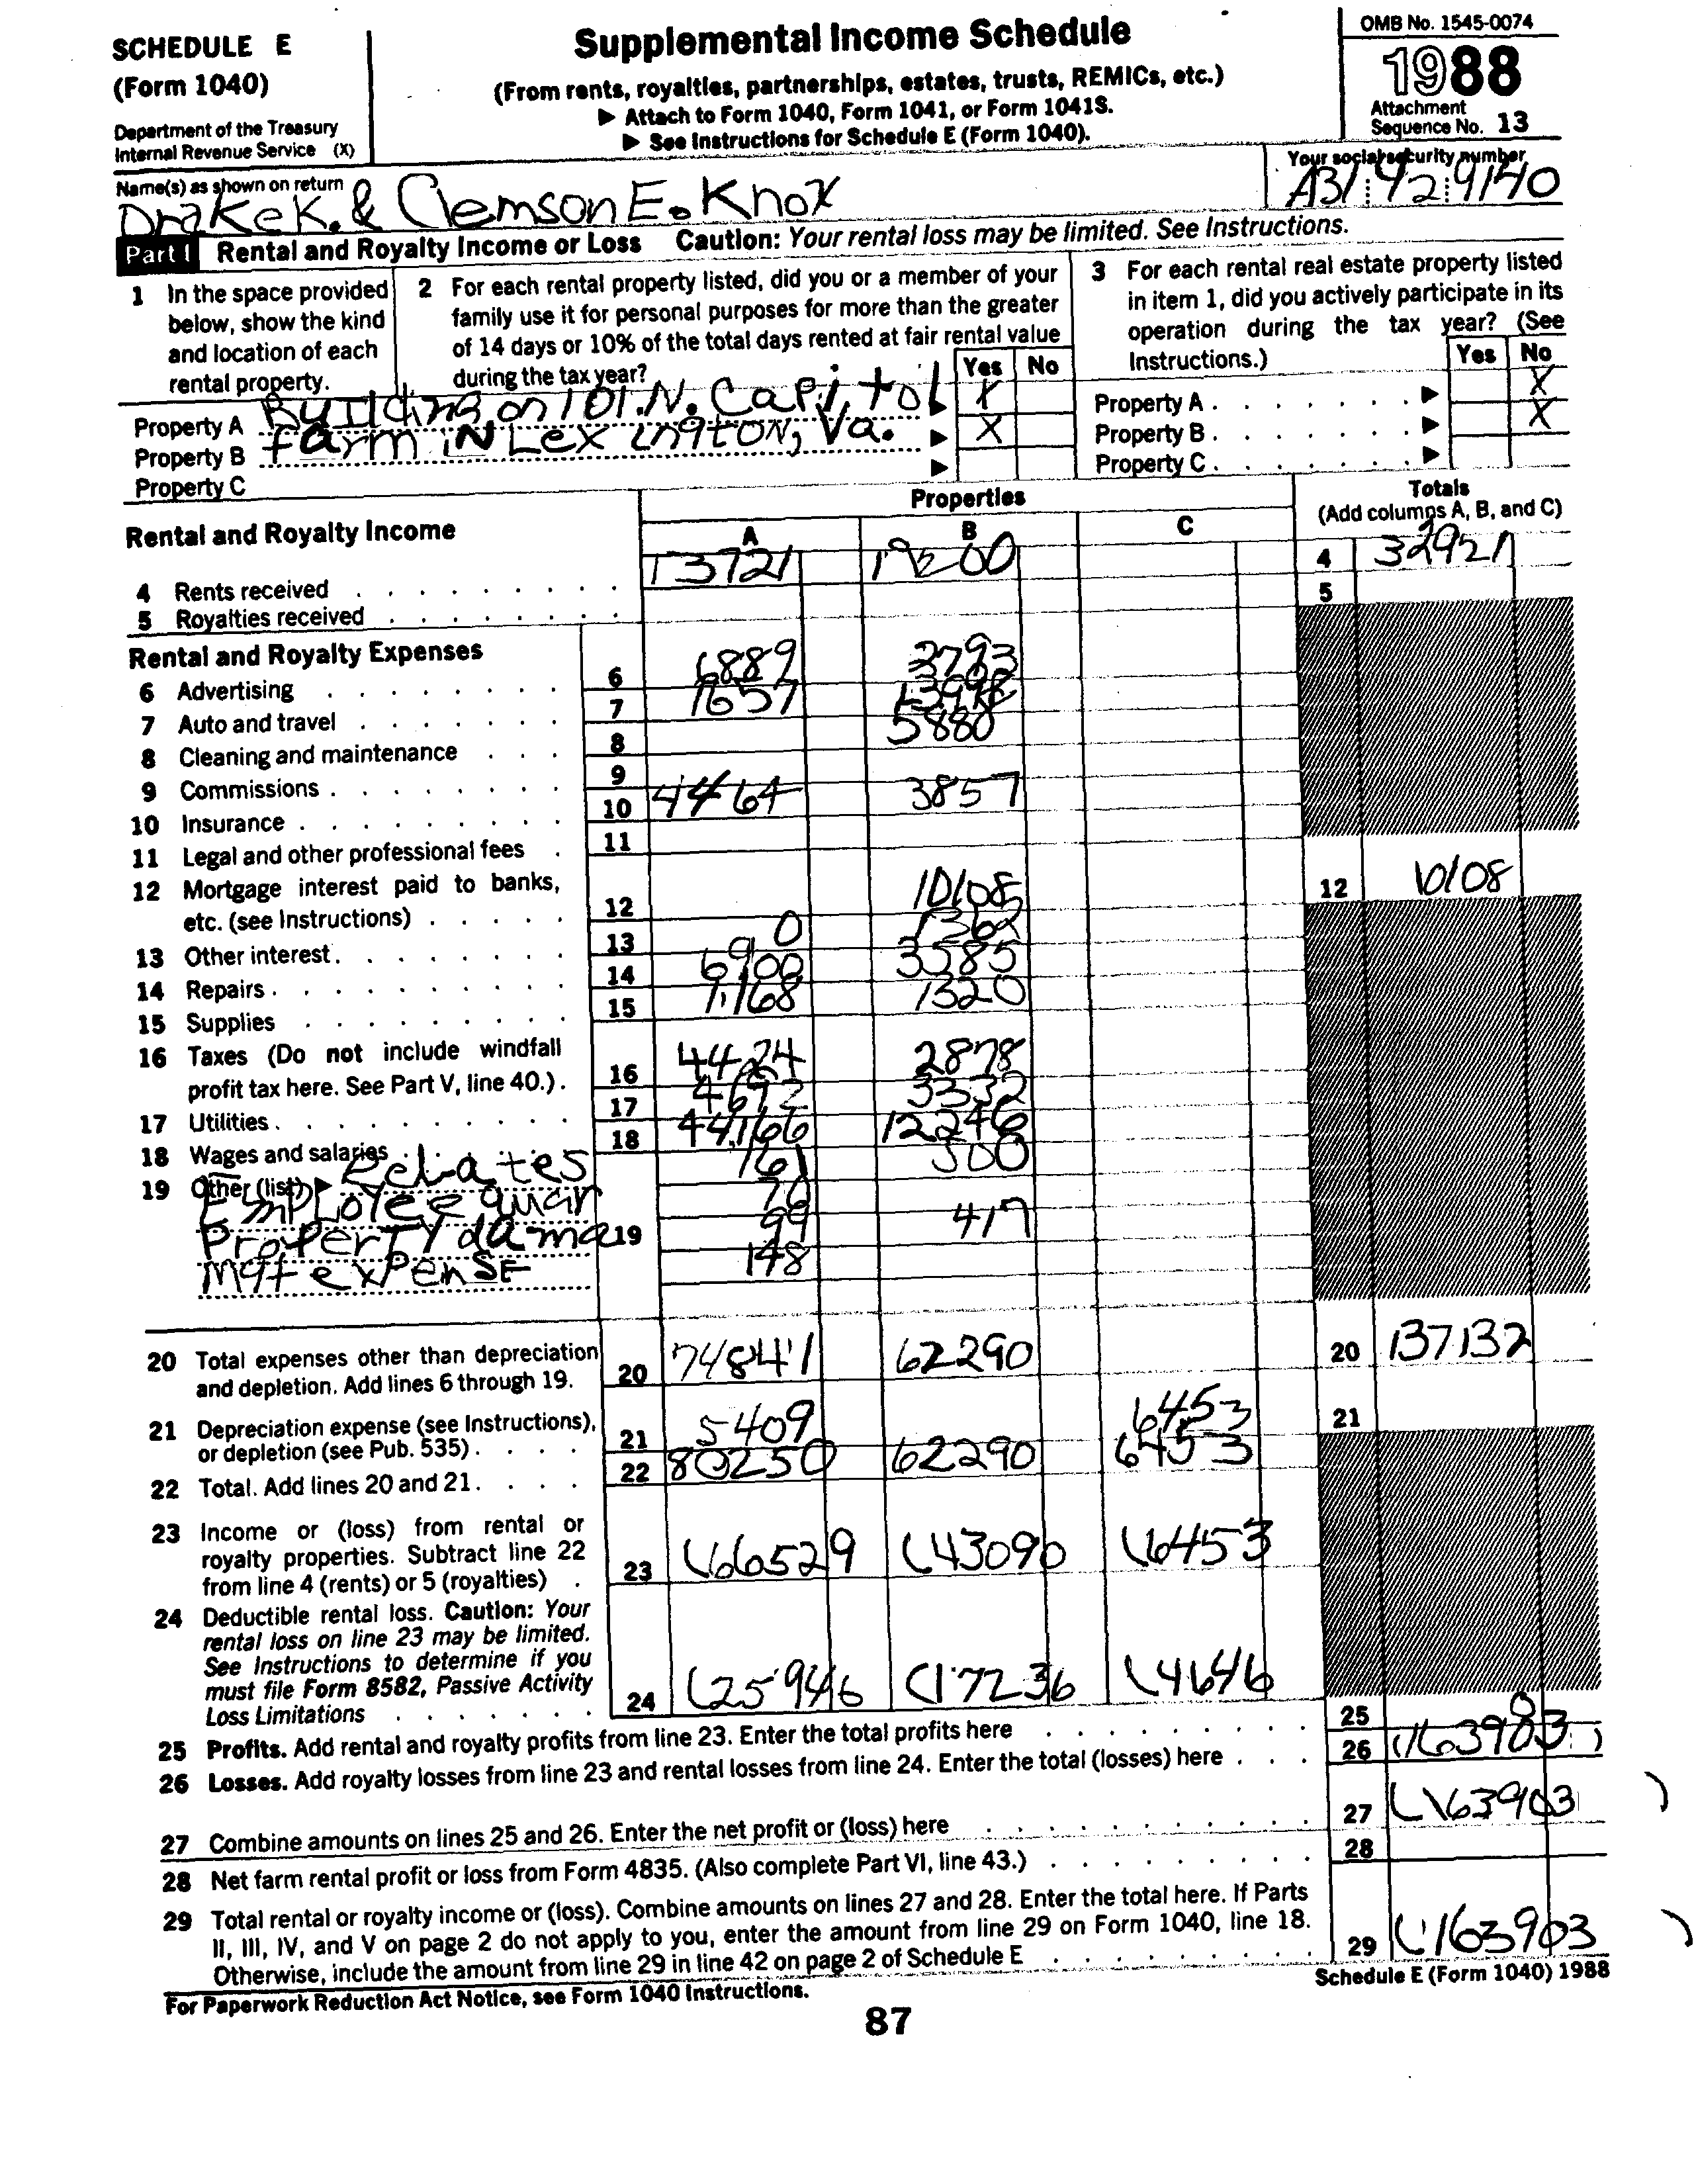 SCHEDULE E
(Form 1040)
Department of the Treasury
Internal Revenue Service (X)
Supplemental Income Schedule
(From rents, royalties, partnerships, estates, trusts, REMICs, etc.)
▶ Attach to Form 1040, Form 1041, or Form 1041S.
▶ See Instructions for Schedule E (Form 1040).
OMB No. 1545-0074
1988
Attachment
Sequence No. 13
Name(s) as shown on return
Drake K. & Clemson E. Knox
Your social security number
A31 42 9140
Part I Rental and Royalty Income or Loss Caution: Your rental loss may be limited. See Instructions.
1 In the space provided
below, show the kind
and location of each
rental property.
2 For each rental property listed, did you or a member of your
family use it for personal purposes for more than the greater
of 14 days or 10% of the total days rented at fair rental value
during the tax year?
Yes No
3 For each rental real estate property listed
in item 1, did you actively participate in its
operation during the tax year? (See
Instructions.)
Yes No
Property A Building on 101.N. Capitol ▶ X
Property B farm in Lexington, Va. ▶ X
Property C ▶
Property A . . . . . . . ▶ X
Property B . . . . . . . ▶ X
Property C . . . . . . . ▶
Rental and Royalty Income
Properties
A B C
Totals
(Add columns A, B, and C)
4 Rents received 13721 19200 4 32921
5 Royalties received 5
Rental and Royalty Expenses
6 Advertising 6 6889 3793
7 Auto and travel 7 1657
8 Cleaning and maintenance 8 5880
9 Commissions 9
10 Insurance 10 4464 3857
11 Legal and other professional fees 11
12 Mortgage interest paid to banks,
etc. (see Instructions) 12 10108 12 10108
13 Other interest 13 0 1362
14 Repairs 14 6900 3585
15 Supplies 15 1,168 1320
16 Taxes (Do not include windfall
profit tax here. See Part V, line 40.) 16 4424 2878
17 Utilities 17 4692 3332
18 Wages and salaries 18 44,166 12246
19 Other (list) ▶ Rebates 161 500
Employee quar 70
Property dama 19 99 417
mgt expense 148
20 Total expenses other than depreciation
and depletion. Add lines 6 through 19. 20 74841 62290 20 137132
21 Depreciation expense (see Instructions),
or depletion (see Pub. 535) 21 5409 6453 21
22 Total. Add lines 20 and 21 22 80250 62290 6453
23 Income or (loss) from rental or
royalty properties. Subtract line 22
from line 4 (rents) or 5 (royalties) 23 (66529 (43090 (6453
24 Deductible rental loss. Caution: Your
rental loss on line 23 may be limited.
See Instructions to determine if you
must file Form 8582, Passive Activity
Loss Limitations 24 (25946 (17236 (4646
25 Profits. Add rental and royalty profits from line 23. Enter the total profits here 25 0
26 Losses. Add royalty losses from line 23 and rental losses from line 24. Enter the total (losses) here 26 (163903)
27 Combine amounts on lines 25 and 26. Enter the net profit or (loss) here 27 (163903)
28 Net farm rental profit or loss from Form 4835. (Also complete Part VI, line 43.) 28
29 Total rental or royalty income or (loss). Combine amounts on lines 27 and 28. Enter the total here. If Parts
II, III, IV, and V on page 2 do not apply to you, enter the amount from line 29 on Form 1040, line 18.
Otherwise, include the amount from line 29 in line 42 on page 2 of Schedule E 29 (163903)
For Paperwork Reduction Act Notice, see Form 1040 Instructions.
Schedule E (Form 1040) 1988
87